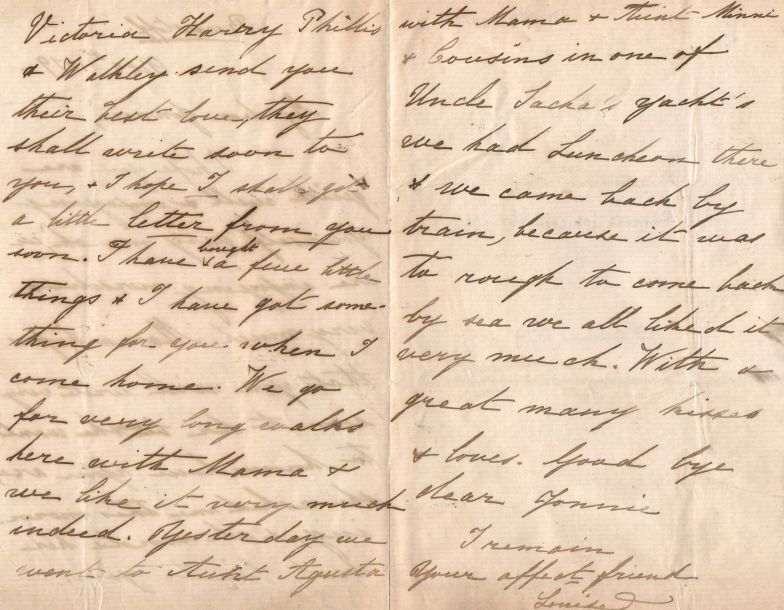 Victoria Harry Phillis
& Walkley send you
their best love, they
shall write soon to
you, & I hope I shall get
a little letter from you
soon. I have bought a few little
things & I have got some-
thing for you when I
come home. We go
for very long walks
here with Mama &
we like it very much
indeed. Yesterday we
went to Aunt Agusta
with Mama & Aunt Minni
& Cousins in one of
Uncle Sacha's yacht's
we had Luncheon there
& we came back by
train, because it was
to rough to come back
by sea we all liked it
very much. With a
great many kisses
& loves. Good bye
dear Tonnie
I remain
Your affect friend
Louise